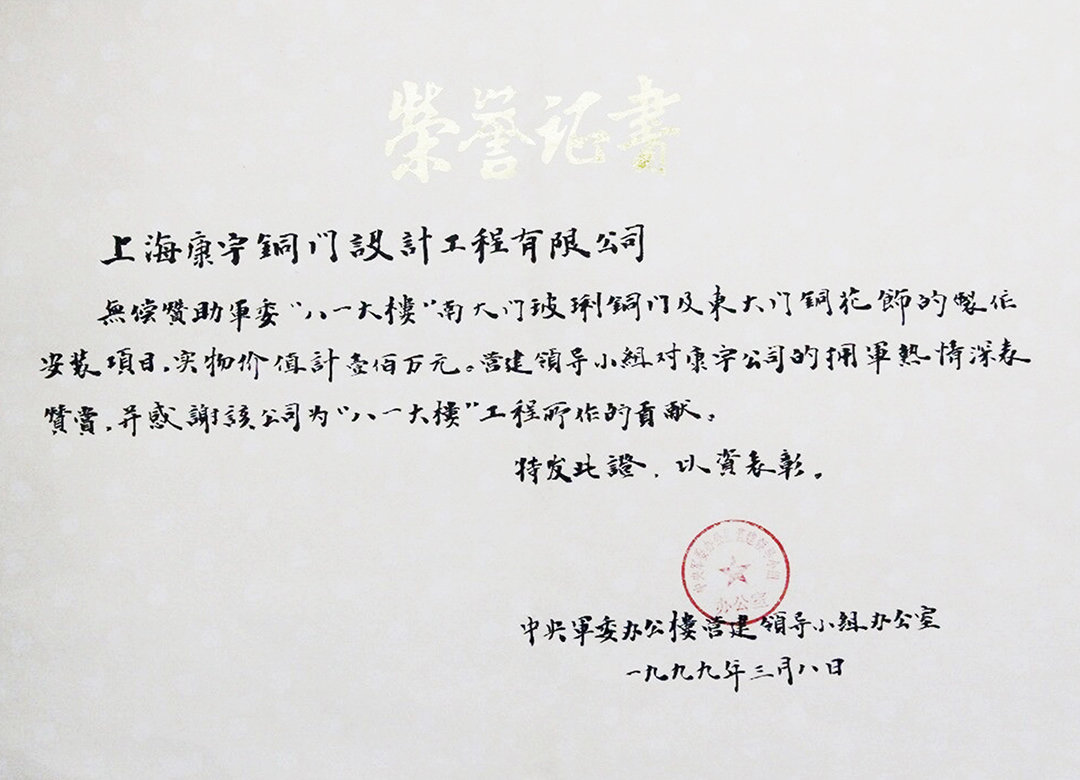 榮誉证書
上海康宇銅门設計工程有限公司
無偿贊助軍委“八一大樓”南大门玻琍銅门及東大门銅花飾的製作
安装項目，实物价值計壹佰万元。营建領导小組对康宇公司的拥軍熱情深表
贊赏，并感謝該公司为“八一大樓”工程所作的貢献。
特发此證，以資表彰。
办公室
中央軍委办公樓营建領导小組办公室
一九九九年三月八日